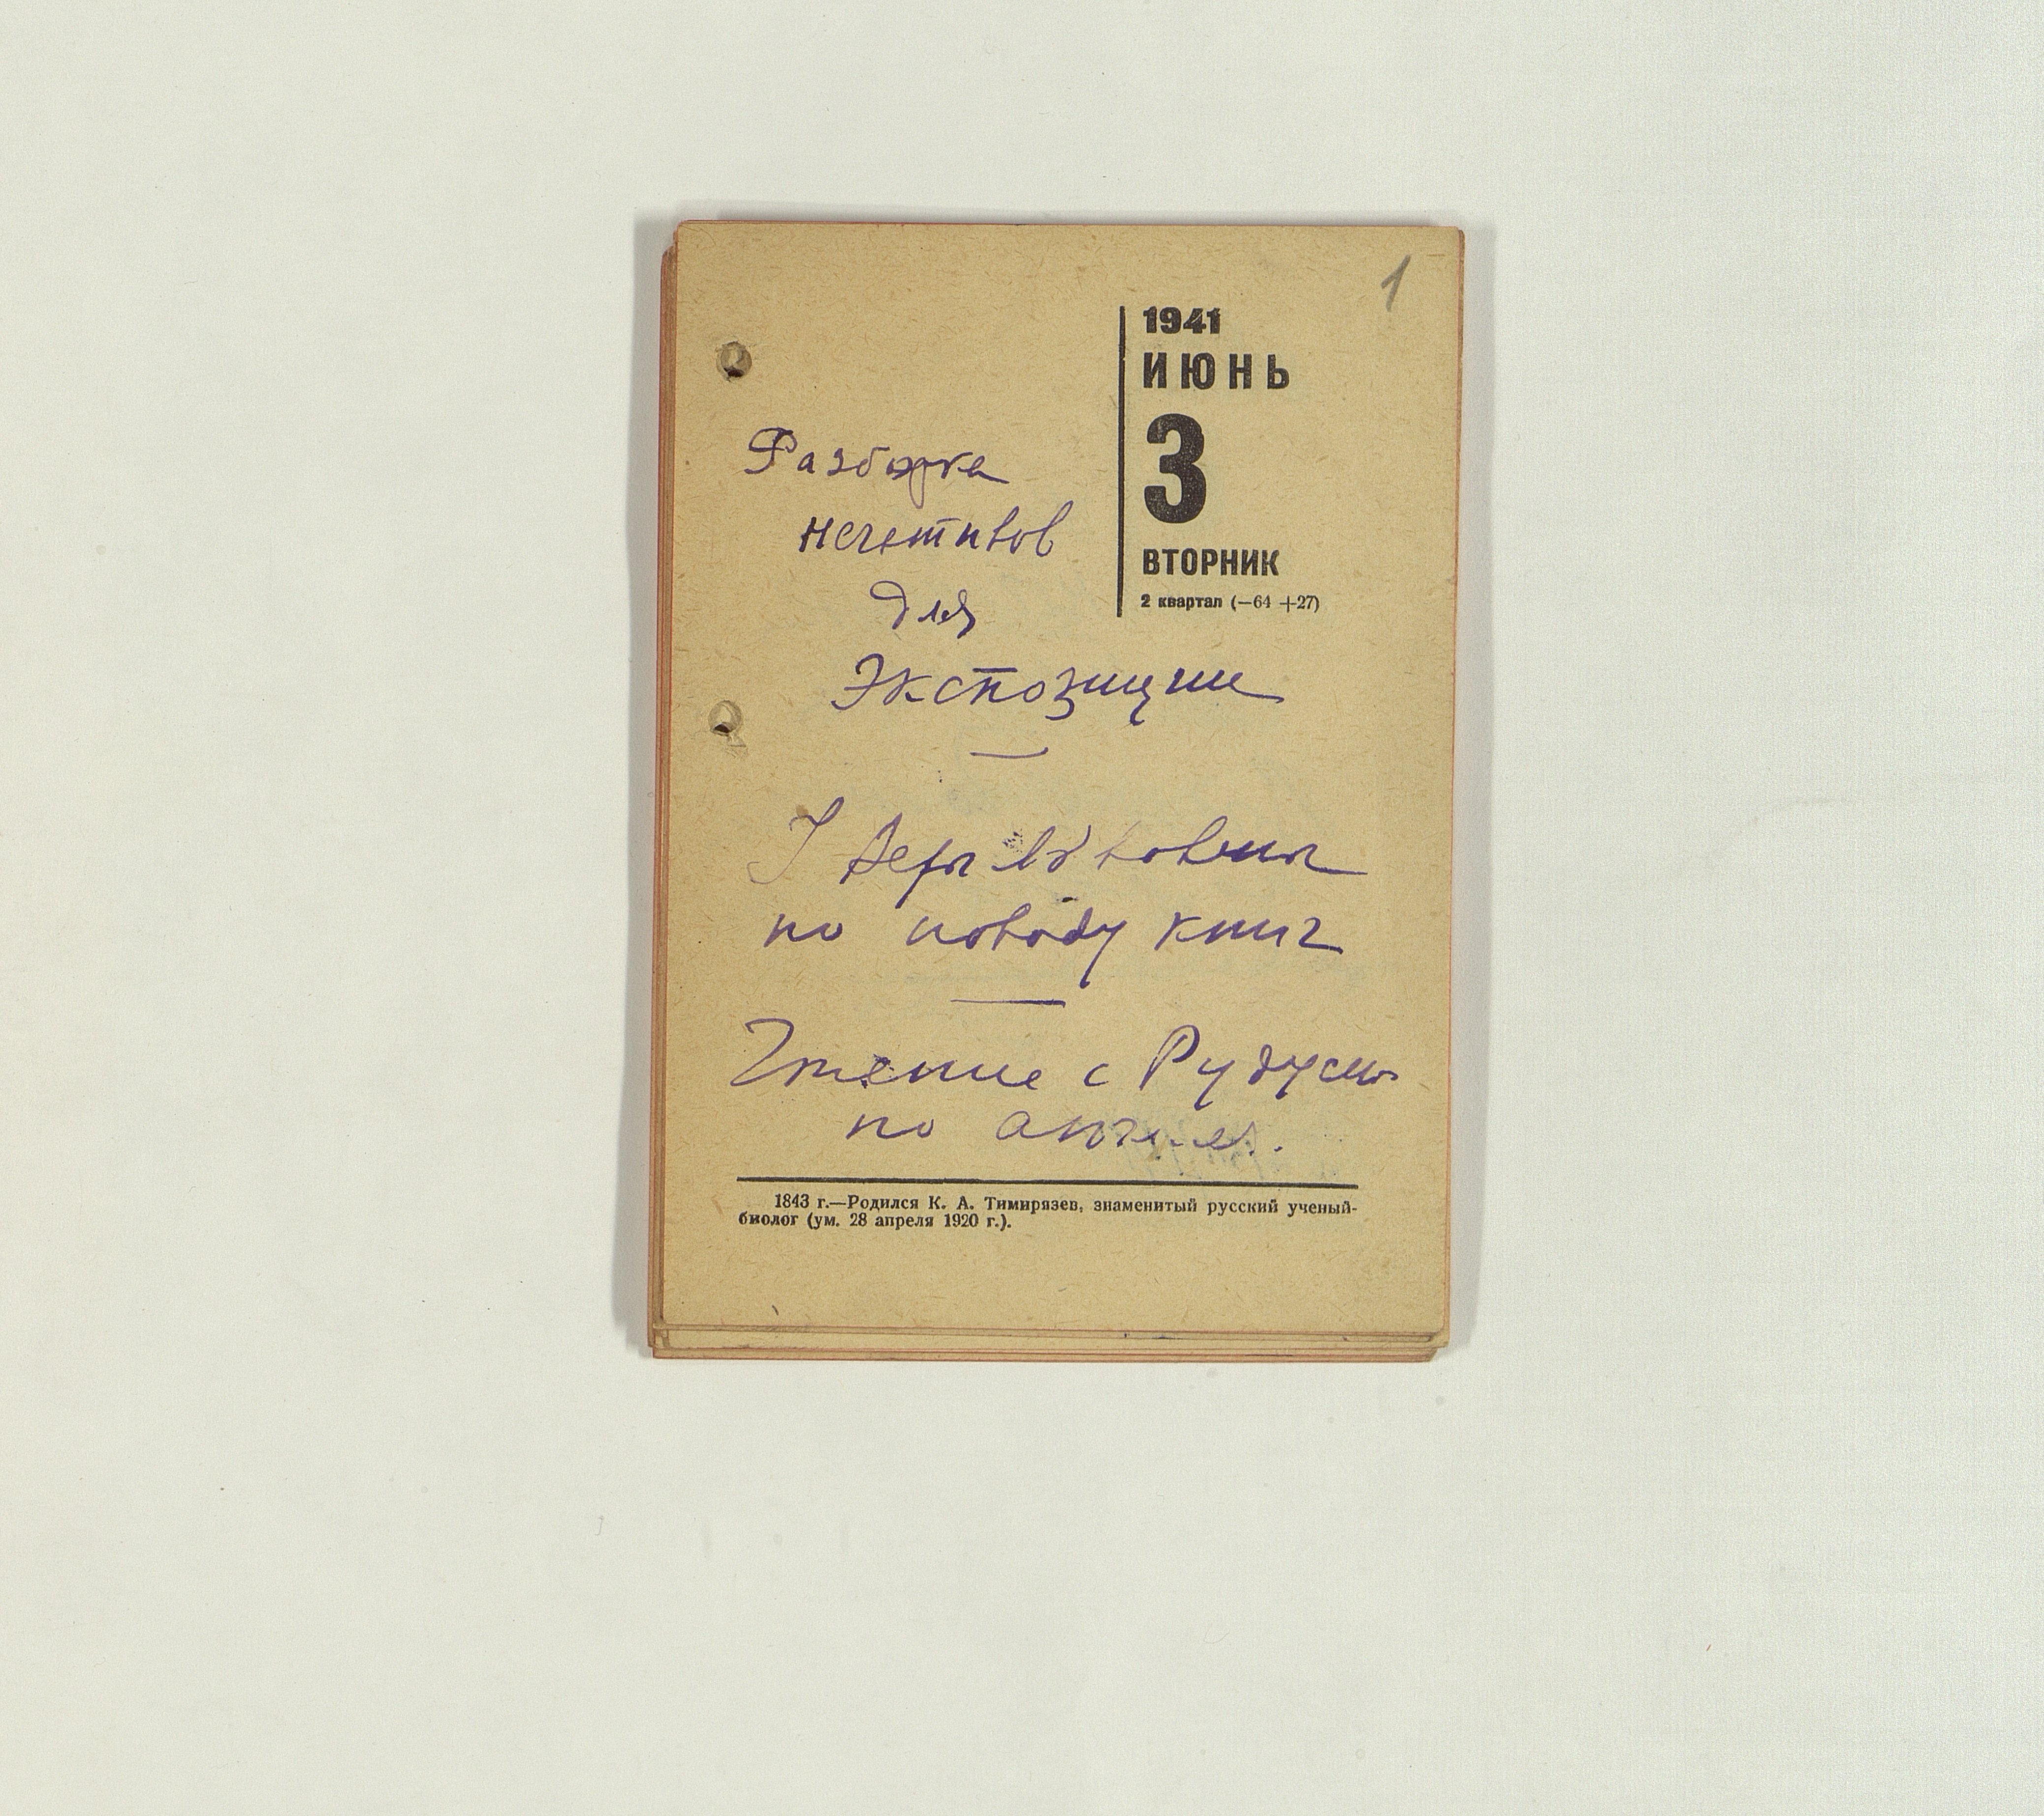 1
1941
ИЮНЬ
3
ВТОРНИК
2 квартал (—64 +27)
Разборка
негативов
для
Экспозиции
У Веры
по поводу книг
Чтение с
по
1843 г.—Родился К. А. Тимирязев, знаменитый русский ученый-
биолог (ум. 28 апреля 1920 г.).